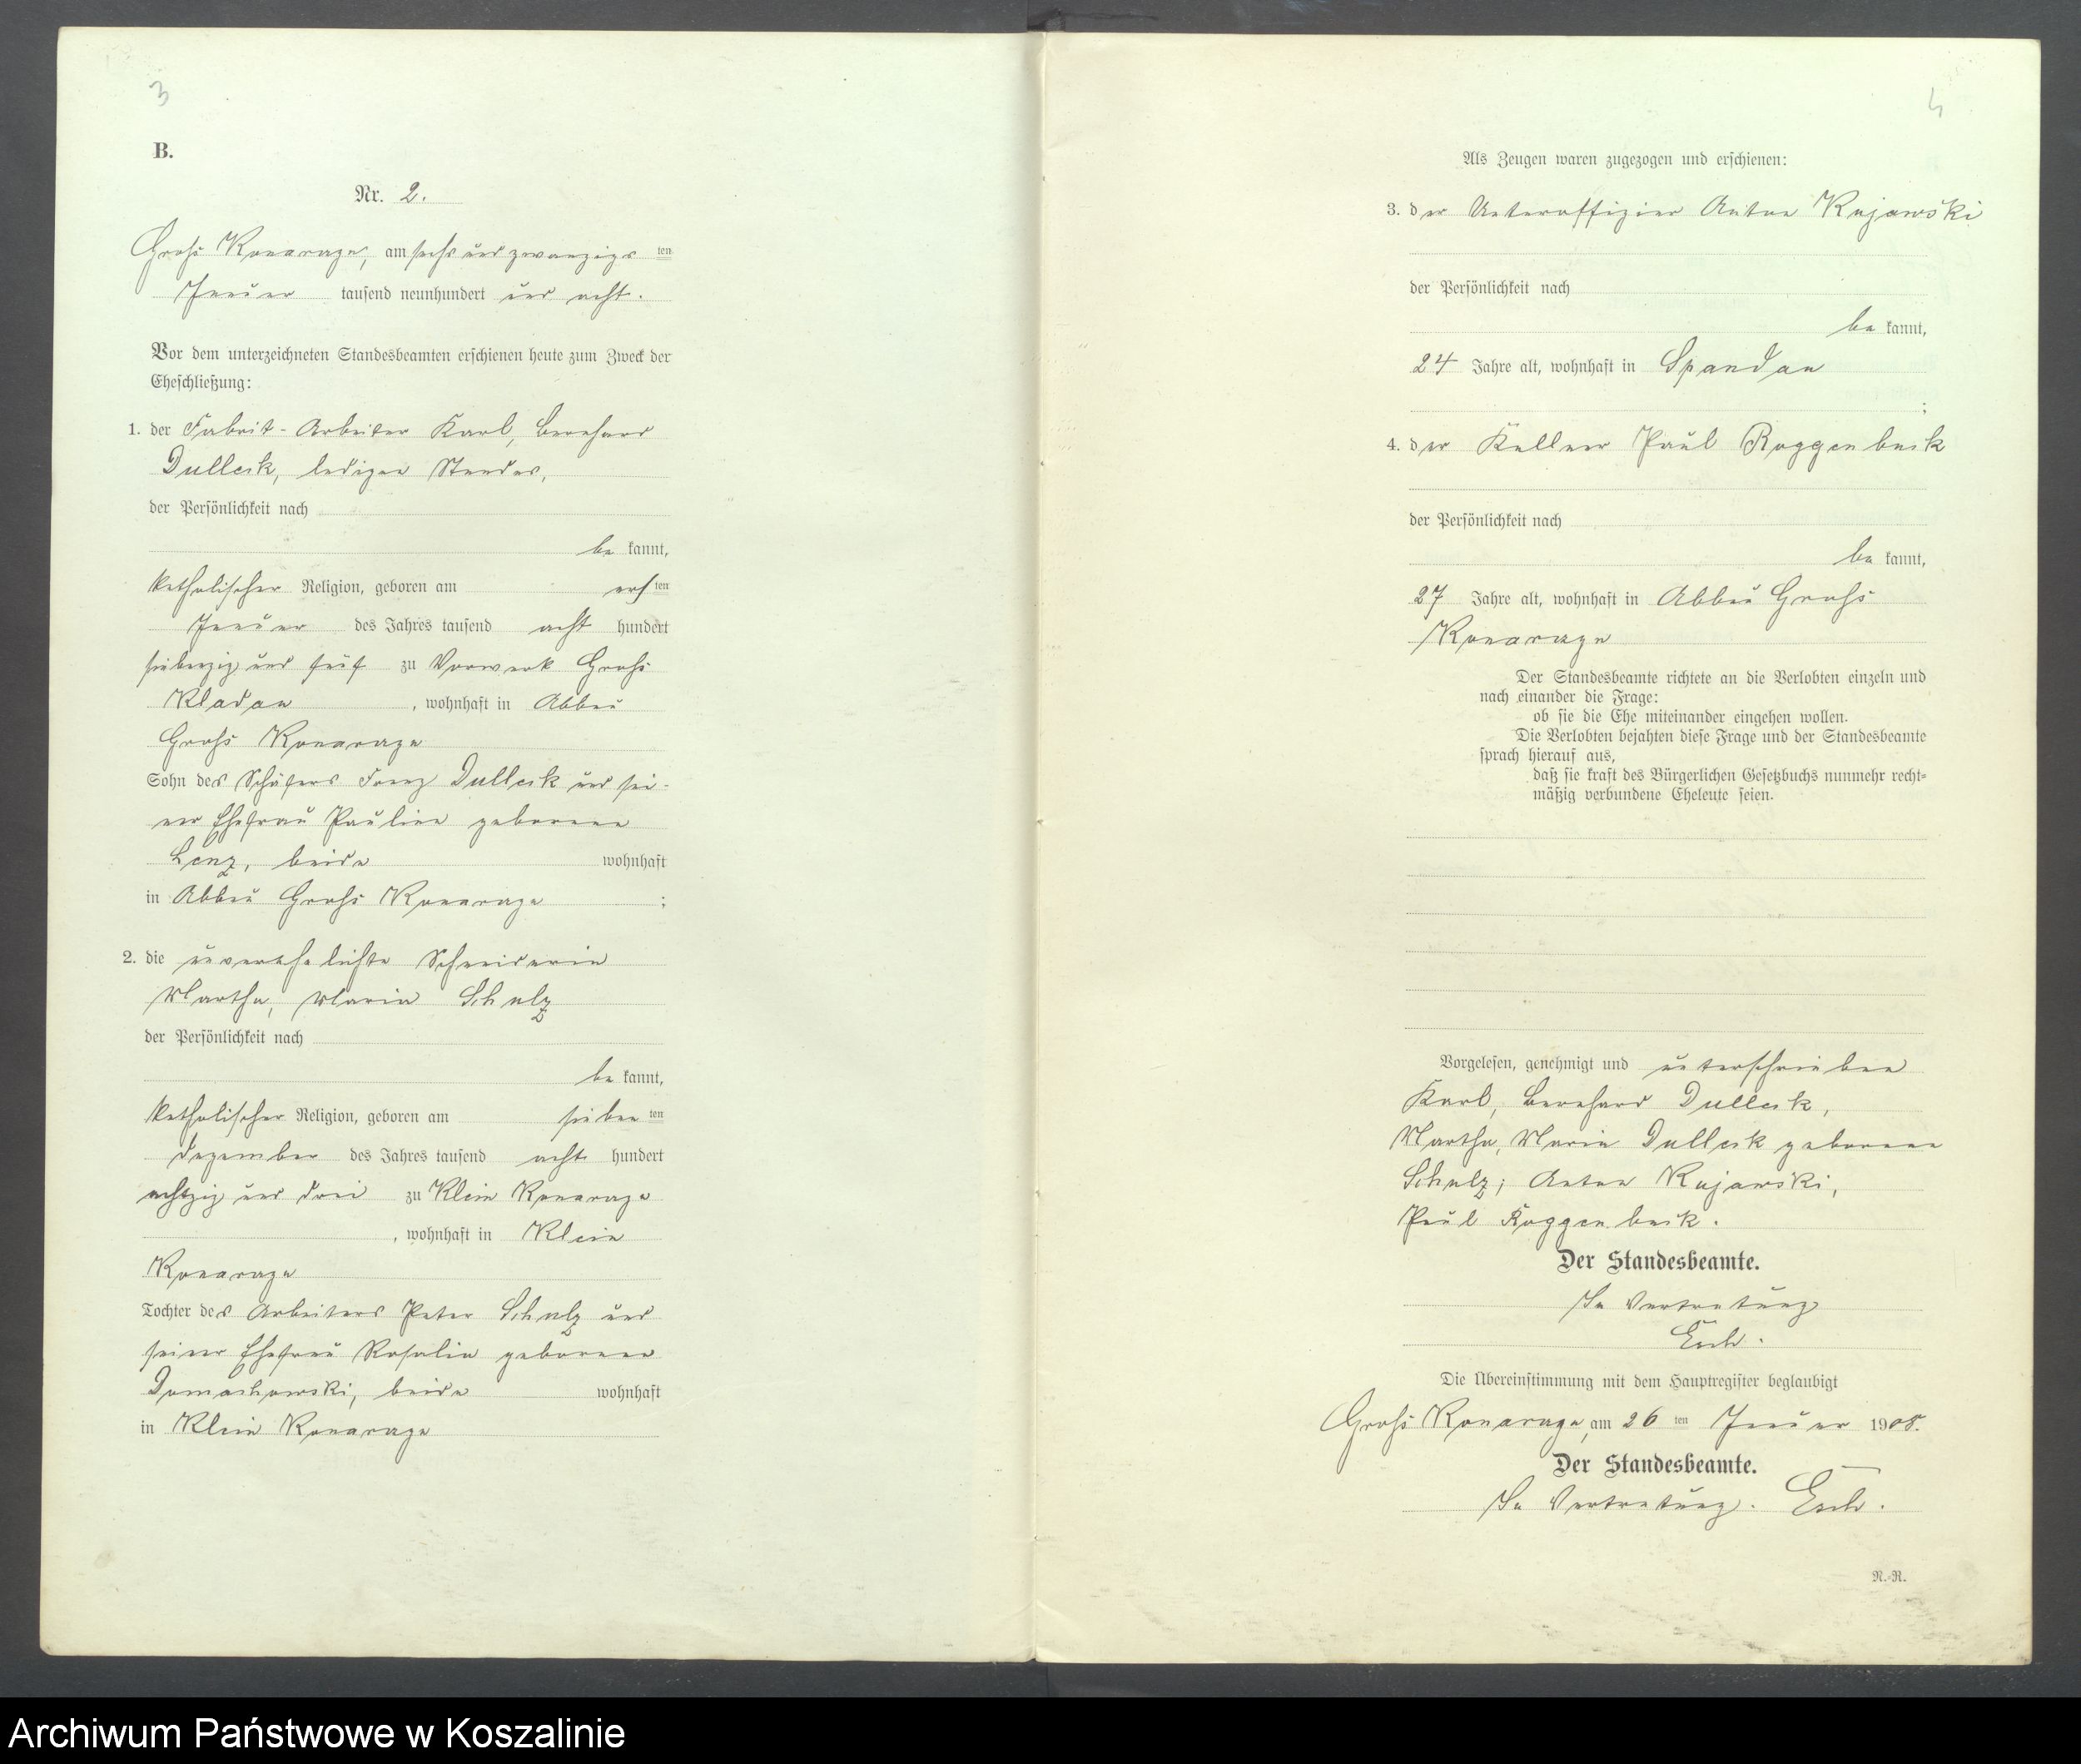 3
B.
Nr. 2.
Groß Konarzyn, am sechs und zwanzigs ten
Januar tausend neunhundert und acht.
Vor dem unterzeichneten Standesbeamten erschienen heute zum Zweck der
Eheschließung:
1. der Fabrik-Arbeiter Karl, Bernhard
Dulleck, ledigen Standes,
der Persönlichkeit nach
be kannt,
katholischer Religion, geboren am ers ten
Januar des Jahres tausend acht hundert
siebenzig und fünf zu Vorwerk Groß
Kladau, wohnhaft in Abbau
Groß Konarzyn
Sohn des Schäfers Franz Dulleck und sei-
ner Ehefrau Pauline geborene
Lenz, beide wohnhaft
in Abbau Groß Konarzyn ;
2. die unverehelichte Schneiderin
Martha, Maria Schulz
der Persönlichkeit nach
be kannt,
katholischer Religion, geboren am sieben ten
Dezember des Jahres tausend acht hundert
achtzig und drei zu Klein Konarzyn
, wohnhaft in Klein
Konarzyn
Tochter des Arbeiters Peter Schulz und
seiner Ehefrau Rosalie geborene
Domachowski, beide wohnhaft
in Klein Konarzyn
4
Als Zeugen waren zugezogen und erschienen:
3. der Unteroffizier Anton Kujawski
der Persönlichkeit nach
be kannt,
24 Jahre alt, wohnhaft in Spandau
;
4. der Kellner Paul Roggenbuck
der Persönlichkeit nach
be kannt,
27 Jahre alt, wohnhaft in Abbau Groß
Konarzyn
Der Standesbeamte richtete an die Verlobten einzeln und
nach einander die Frage:
ob sie die Ehe miteinander eingehen wollen.
Die Verlobten bejahten diese Frage und der Standesbeamte
sprach hierauf aus,
daß sie kraft des Bürgerlichen Gesetzbuchs nunmehr recht-
mäßig verbundene Eheleute seien.
Vorgelesen, genehmigt und unterschrieben
Karl, Bernhard Dulleck,
Martha, Maria Dulleck geborene
Schulz; Anton Kujawski,
Paul Roggenbuck.
Der Standesbeamte.
In Vertretung
Esch.
Die Übereinstimmung mit dem Hauptregister beglaubigt
Groß Konarzyn, am 26 ten Januar 1908.
Der Standesbeamte.
In Vertretung. Esch.
N.-R.
Archiwum Państwowe w Koszalinie